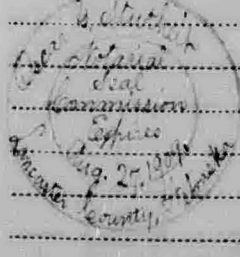 Notarial
Seal
Commission
Expires
Aug. 27, 1909.
Lancaster County, Nebraska